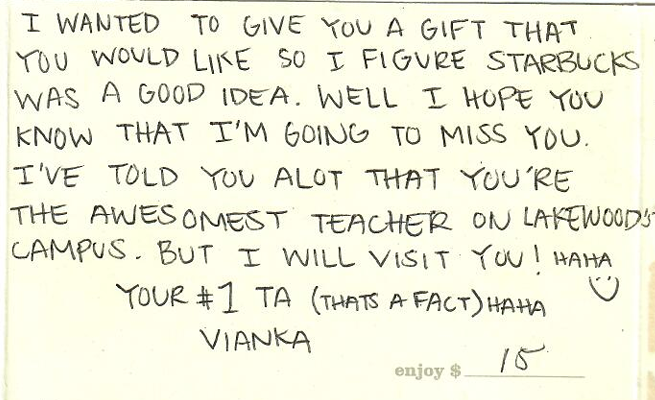 I WANTED TO GIVE YOU A GIFT THAT
YOU WOULD LIKE SO I FIGURE STARBUCKS
WAS A GOOD IDEA. WELL I HOPE YOU
KNOW THAT I'M GOING TO MISS YOU.
I'VE TOLD YOU ALOT THAT YOU'RE
THE AWESOMEST TEACHER ON LAKEWOOD'S
CAMPUS. BUT I WILL VISIT YOU! HAHA
YOUR #1 TA (THATS A FACT) HAHA
VIANKA
enjoy $ 15